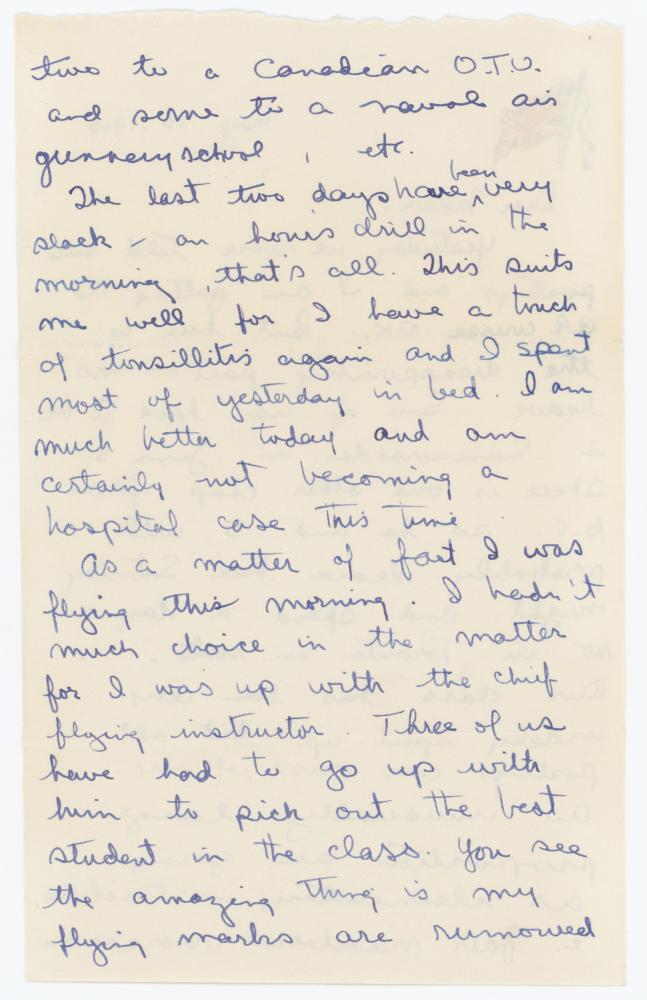 two to a Canadian O.T.U.
and some to a naval air
gunnery school, etc.
The last two days have been very
slack - an hour's drill in the
morning, that's all. This suits
me well for I have a touch
of tonsillitis again and I spent
most of yesterday in bed. I am
much better today and am
certainly not becoming a
hospital case this time.
As a matter of fact I was
flying this morning. I hadn't
much choice in the matter
for I was up with the chief
flying instructor. Three of us
have had to go up with
him to pick out the best
student in the class. You see
the amazing thing is my
flying marks are rumoured